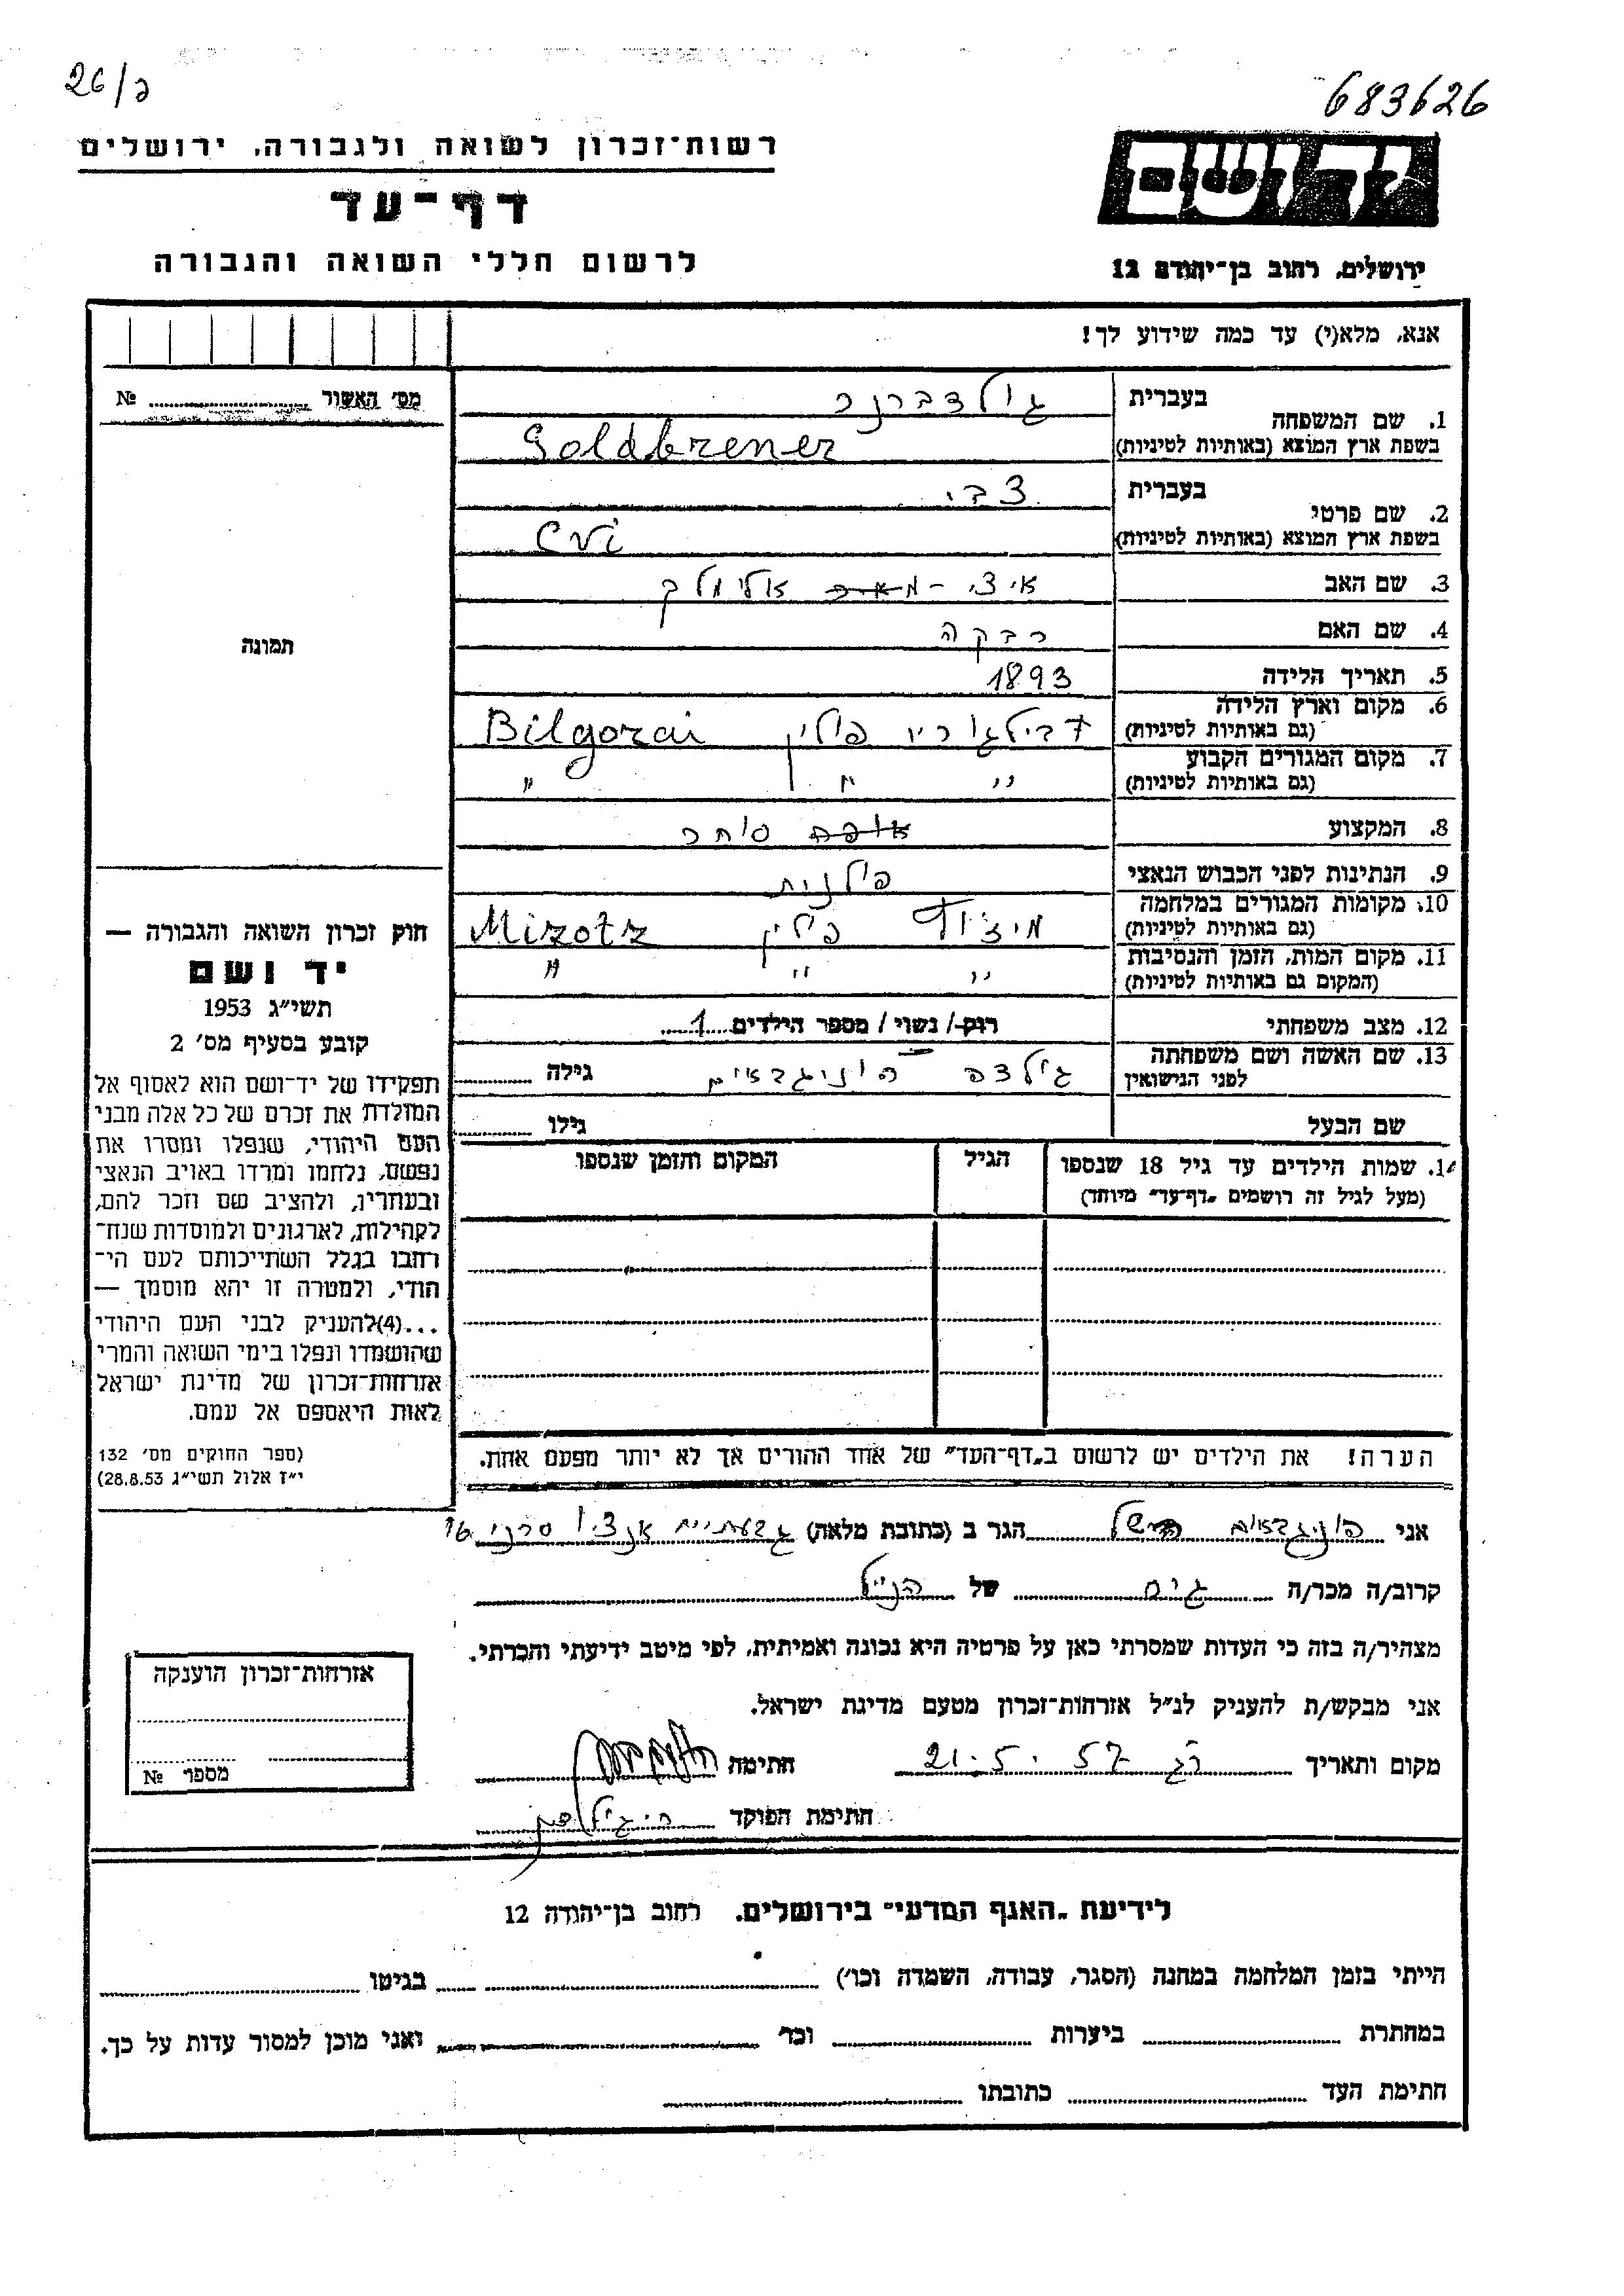 26/כ
683626
רשות־זכרון לשואה ולגבורה, ירושלים
דף־עד
לרשום חללי השואה והגבורה
יד ושם
ירושלים, רחוב בן־יהודה 12
אנא, מלא(י) עד כמה שידוע לך!
מס׳ האשור № 
1. שם המשפחה
בעברית גולדברנר
בשפת ארץ המוצא (באותיות לטיניות) Goldbrener
2. שם פרטי
בעברית צבי
בשפת ארץ המוצא (באותיות לטיניות) Cvi
3. שם האב איצי - אלימלך
4. שם האם רבקה
5. תאריך הלידה 1893
6. מקום וארץ הלידה
(גם באותיות לטיניות) בילגוריי פולין Bilgorai
7. מקום המגורים הקבוע
(גם באותיות לטיניות) " " "
8. המקצוע סוחר
9. הנתינות לפני הכבוש הנאצי פולנית
10. מקומות המגורים במלחמה
(גם באותיות לטיניות) מיזוץ פולין Mizotz
11. מקום המות, הזמן והנסיבות
(המקום גם באותיות לטיניות) " " "
12. מצב משפחתי רוק/ נשוי/ מספר הילדים 1
13. שם האשה ושם משפחתה
לפני הנישואין גולדה הוניגבאום גילה
שם הבעל גילו
14. שמות הילדים עד גיל 18 שנספו
(מעל לגיל זה רושמים „דף־עד״ מיוחד)
הגיל
המקום והזמן שנספו
הערה! את הילדים יש לרשום ב„דף־העד״ של אחד ההורים אך לא יותר מפעם אחת.
תמונה
חוק זכרון השואה והגבורה —
יד ושם
תשי״ג 1953
קובע בסעיף מס׳ 2
תפקידו של יד־ושם הוא לאסוף אל
המולדת את זכרם של כל אלה מבני
העם היהודי, שנפלו ומסרו את
נפשם, נלחמו ומרדו באויב הנאצי
ובעוזריו, ולהציב שם וזכר להם,
לקהילות, לארגונים ולמוסדות שנח־
רחבו בגלל השתייכותם לעם הי־
הודי, ולמטרה זו יהא מוסמך —
...(4)להעניק לבני העם היהודי
שהושמדו ונפלו בימי השואה והמרי
אזרחות־זכרון של מדינת ישראל
לאות היאספם אל עמם.
(ספר החוקים מס׳ 132
י״ז אלול תשי״ג 28.8.53)
אני הוניגבאום הרשל הגר ב (כתובת מלאה) גבעתיים אנציו סרני 16
קרוב/ה מכר/ה גיס של הנ״ל
מצהיר/ה בזה כי העדות שמסרתי כאן על פרטיה היא נכונה ואמיתית, לפי מיטב ידיעתי והכרתי.
אני מבקש/ת להעניק לנ״ל אזרחות־זכרון מטעם מדינת ישראל.
מקום ותאריך רג 21.5.57 חתימה
חתימת הפוקד
אזרחות־זכרון הוענקה
מספר №
לידיעת „האגף המדעי״ בירושלים, רחוב בן־יהודה 12
הייתי בזמן המלחמה במחנה (הסגר, עבודה, השמדה וכו׳) בגיטו
במחתרת ביערות וכו׳ ואני מוכן למסור עדות על כך.
חתימת העד כתובתו